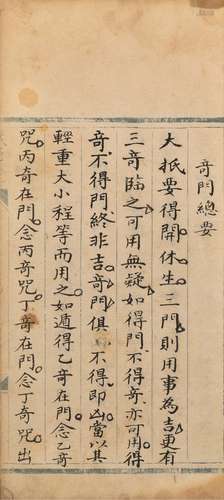 奇門總要
大抵要得開休生三門則用事為吉更有
三奇臨之可用無疑如得門不得奇亦可用得
奇不得門終非吉奇門俱不得即凶當以其
輕重大小程等而用之如遁得乙奇在門念乙奇
咒丙奇在門念丙奇咒丁奇在門念丁奇咒出